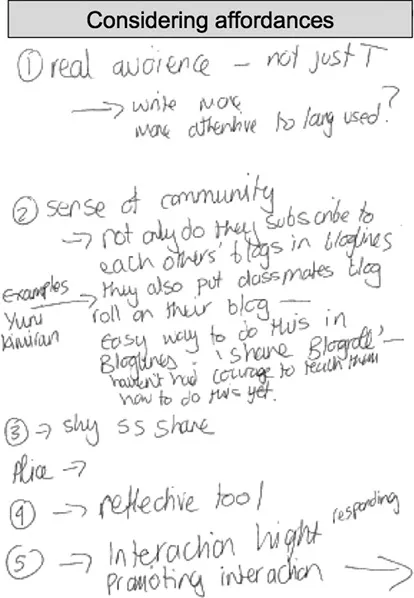 Considering affordances
① real audience – not just T
→ write more
more attentive to lang used?
② sense of community
→ not only do they subscribe to
each others' blogs in bloglines
Examples → they also put classmates blog
Yuru roll on their blog —
easy way to do this in
Bloglines – 'share Blogroll' –
haven't had courage to teach them
how to do this yet.
③ → shy SS share
Alice →
④ → reflective tool
⑤ → Interaction responding
promoting interaction →